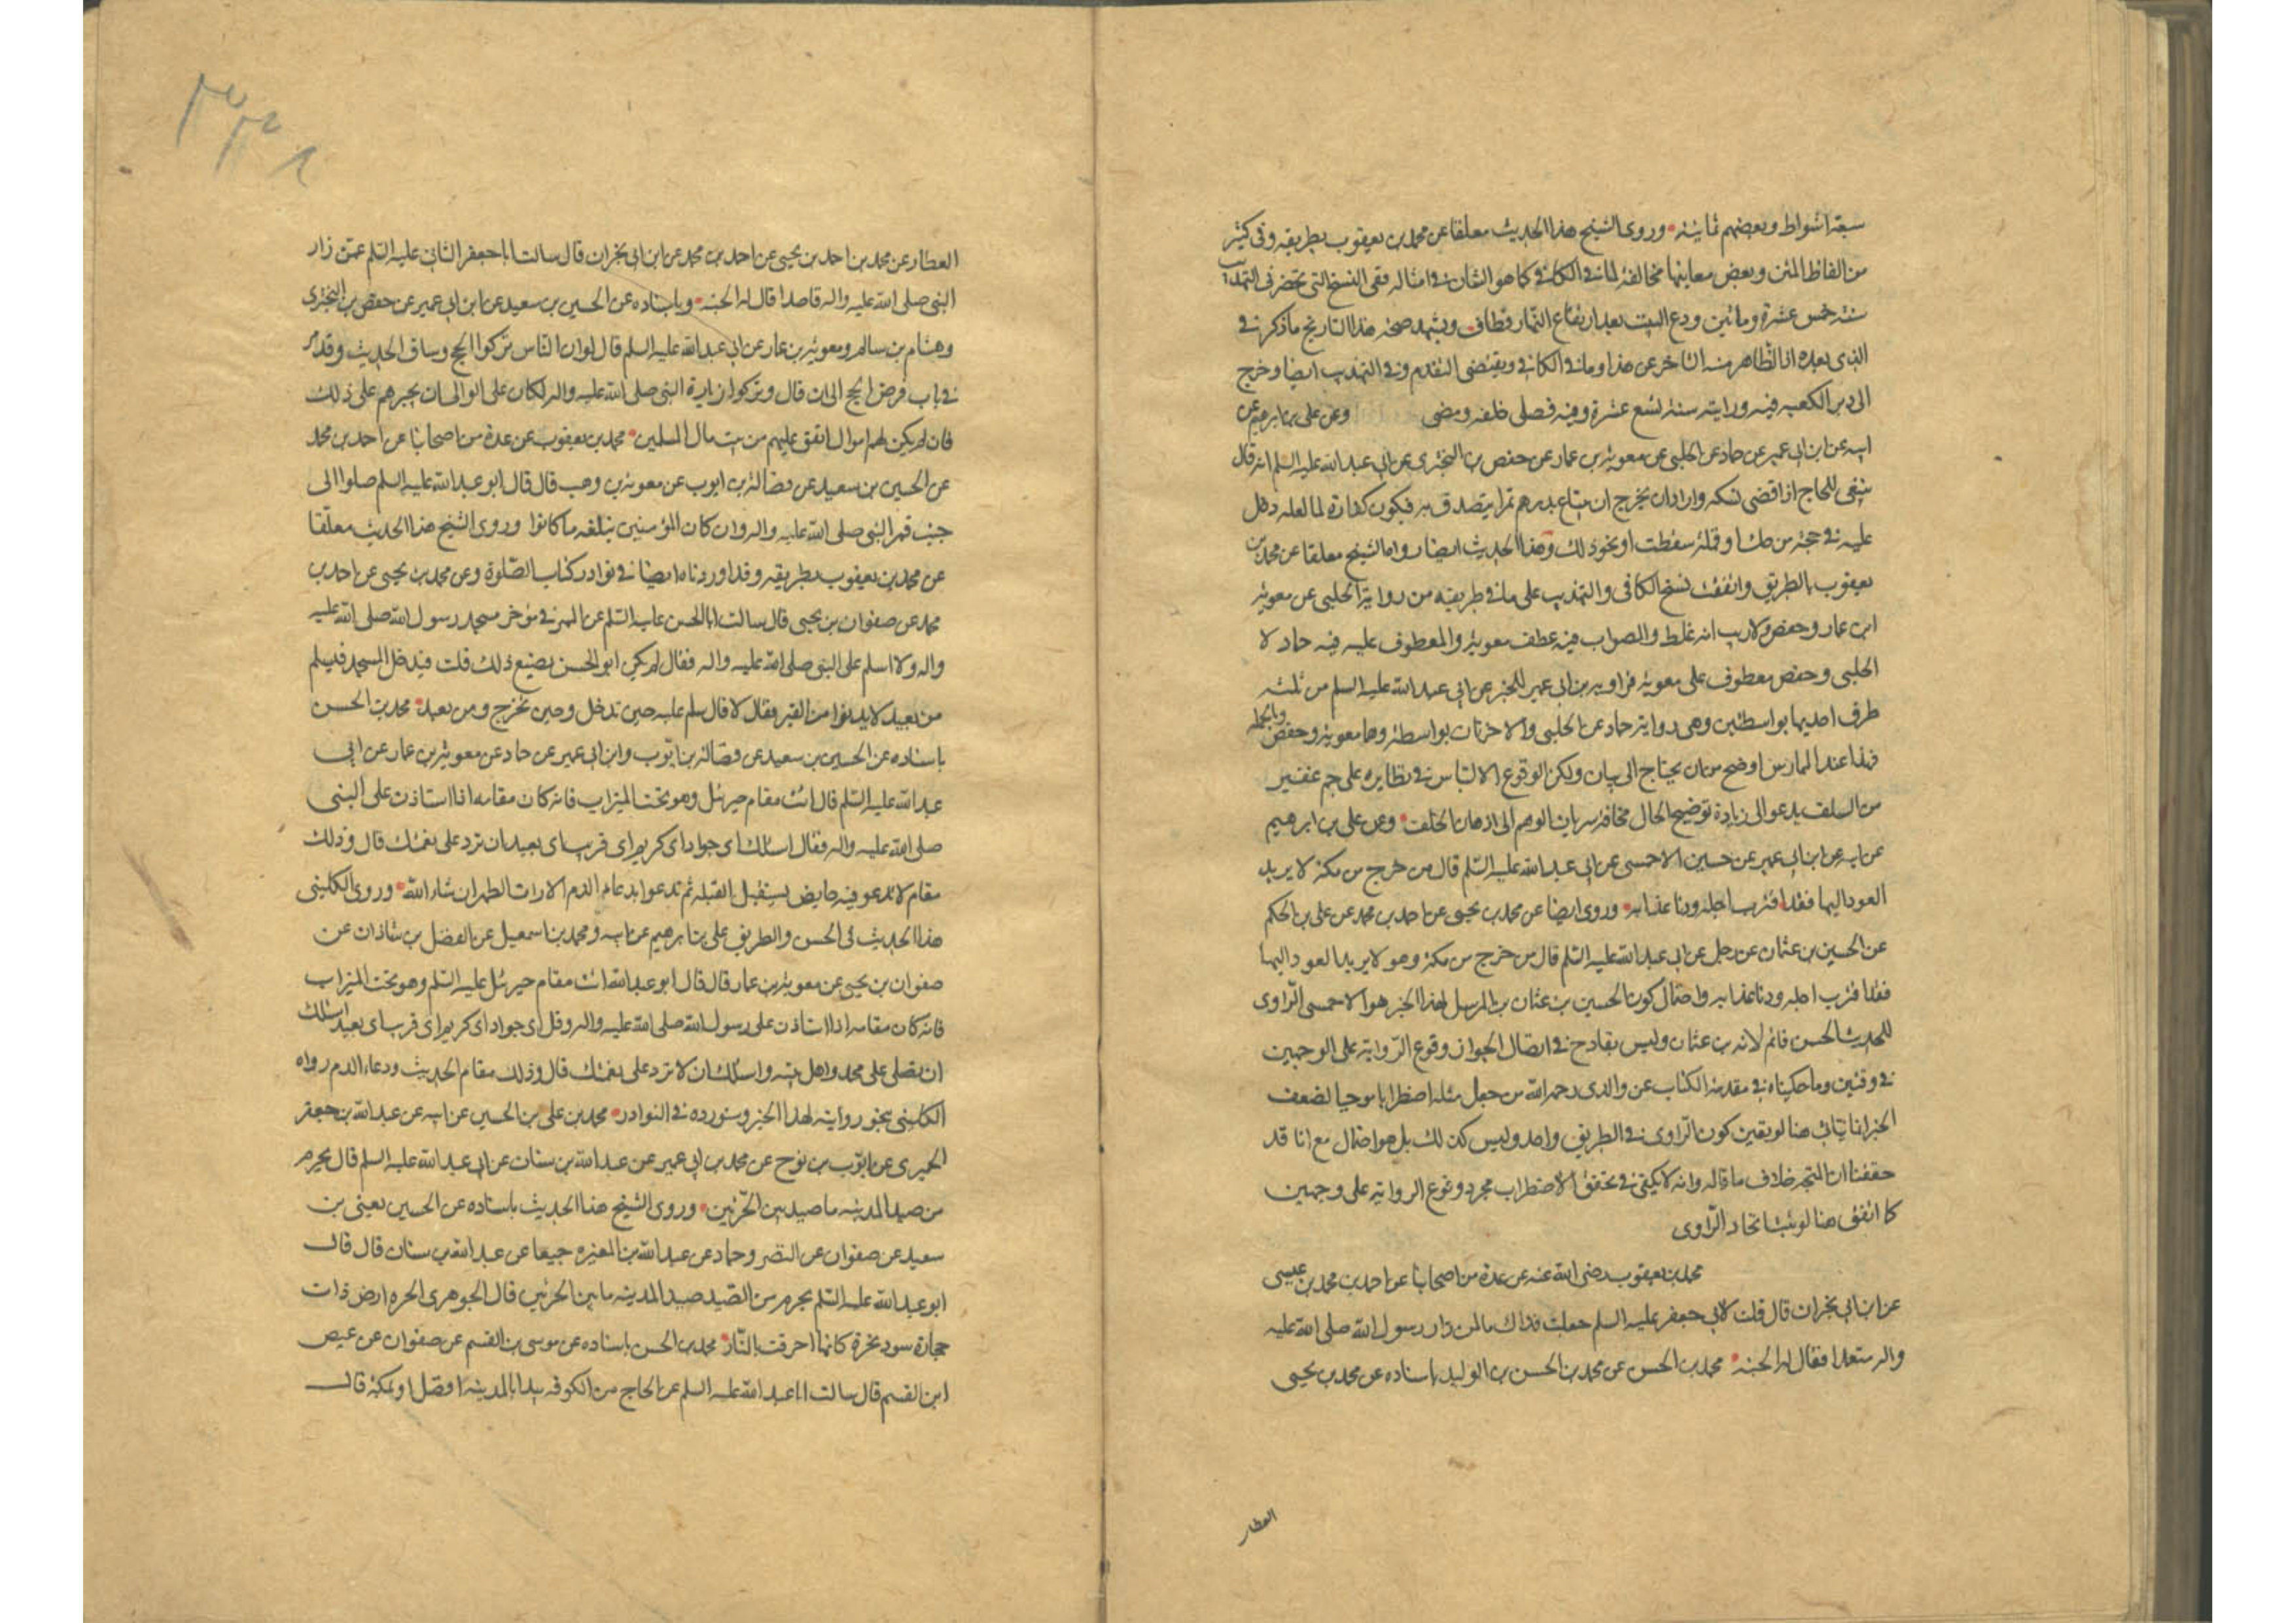 سبعة اشواط وبعضهم ثمانية وروى الشيخ هذا الحديث معلقا عن محمد بن يعقوب بطريقه وفى كثير
من الفاظ المتن وبعض معانيها مخالفة لما فى الكافى كما هو الشان فى امثاله ففى النسخ التى تحضرنى للتهذيب
سنة خمس عشرة ومائتين ودع البيت بعد ارتفاع النهار فطاف ويشهد صحة هذا التاريخ ما ذكره فى
الذى بعده اذ الظاهر منه التاخر عن هذا وما فى الكافى ويقتضى التقدم وفى التهذيب ايضا وخرج
الى دبر الكعبه فيه ورايته سنة تسع عشرة وفيه فصلى خلفه ومضى وعن على بن ابرهيم عن
ابيه عن ابن ابى عمير عن حماد عن الحلبى عن معوية بن عمار عن حفص بن البخترى عن ابى عبد الله عليه السلم انه قال
ينبغى للحاج اذا قضى نسكه واراد ان يخرج ان يبتاع بدرهم تمرا يتصدق به فيكون كفارة لما لعله دخل
عليه فى حجه من حك او قملة سقطت او نحو ذلك وهذا الحديث ايضا رواه الشيخ معلقا عن محمد بن
يعقوب بالطريق واتفقت نسخ الكافى والتهذيب على ما فى طريقه من رواية الحلبى عن معوية
ابن عمار وحفص ولا ريب انه غلط والصواب فيه عطف معوية والمعطوف عليه فيه حماد لا
الحلبى وحفص معطوف على معوية فراويه بن ابى عمير للخبر عن ابى عبد الله عليه السلم من ثلثة
طرف احديها بواسطتين وهى رواية حماد عن الحلبى والاخرتان بواسطة وهما معوية وحفص وبالجملة
فهذا عند الممارس اوضح من ان يحتاج الى بيان ولكن الوقوع الالتباس فى نظايره على جم غفير
من السلف يدعو الى زيادة توضيح الحال مخافة سريان الوهم الى اذهان الخلف وعن على بن ابرهيم
عن ابيه عن ابن ابى عمير عن حسين الاحمسى عن ابى عبد الله عليه السّلم قال من خرج من مكة لا يريد
العود اليها فقد اقترب اجله ودنا عذابه وروى ايضا عن محمد بن يحيى عن احمد بن محمد عن على بن الحكم
عن الحسين بن عثمان عن رجل عن ابى عبد الله عليه السّلم قال من خرج من مكة وهو لا يريد العود اليها
فقد اقترب اجله ودنا عذابه واحتمال كون الحسين بن عثمان بن المرسل لهذا الخبر هو الاحمسى الرّاوى
للحديث الحسن قائم لانه بن عثمان وليس بقادح فى اتصال الجواز وقوع الرّواية على الوجهين
فى وقتين وما حكيناه فى مقدمة الكتاب عن والدى رحمه الله من جعل مثله اضطرابا موجبا لضعف
الخبر انما يتاتى هنا لو يقين كون الرّاوى فى الطريق واحد وليس كذلك بل هو احتمال مع انا قد
حققنا ان المتجه خلاف ما قاله وانه لا يكفى فى تحقق الاضطراب مجرد وقوع الرواية على وجهين
كما اتفق هنا لو يثبت اتحاد الرّاوى
محمد بن يعقوب رضى الله عنه عن عدة من اصحابنا عن احمد بن محمد بن عيسى
عن ابن ابى نجران قال قلت لابى جعفر عليه السلم جعلت فداك ما لمن زار رسول الله صلى الله عليه
واله متعمدا فقال له الجنة محمد بن الحسن عن محمد بن الحسن بن الوليد باسناده عن محمد بن يحيى
العطار
العطار عن محمد بن احمد بن يحيى عن احمد بن محمد عن ابن ابى نجران قال سالت ابا جعفر الثانى عليه السّلم عمّن زار
النبى صلى الله عليه واله قاصدا قال له الجنة وباسناده عن الحسين بن سعيد عن ابن ابى عمير عن حفص بن البخترى
وهشام بن سالم ومعوية بن عمار عن ابى عبد الله عليه السلم قال لو ان الناس تركوا الحج وساق الحديث وقد مر
فى باب فرض الحج الى ان قال ولو تركوا زيارة النبى صلى الله عليه واله لكان على الوالى ان يجبرهم على ذلك
فان لم يكن لهم اموال انفق عليهم من بيت مال المسلمين محمد بن يعقوب عن عدة من اصحابنا عن احمد بن محمد
عن الحسين بن سعيد عن فضالة بن ايوب عن معوية بن وهب قال قال ابو عبد الله عليه السلم صلوا الى
جنب قبر النبى صلى الله عليه واله وان كان المؤمنين تبلغه ما كانوا وروى الشيخ هذا الحديث معلّقا
عن محمد بن يعقوب بطريقه وقد اوردناه ايضا فى نوادر كتاب الصّلوة وعن محمد بن يحيى عن احمد بن
محمد عن صفوان بن يحيى قال سالت ابا الحسن عليه السّلم عن الممر فى مؤخر مسجد رسول الله صلى الله عليه
واله ولا اسلم على النبى صلى الله عليه واله فقال لم يكن ابو الحسن يصنع ذلك قلت فيدخل المسجد فيسلم
من بعيد لا يدنوا من القبر فقال لا قال سلم عليه حين تدخل وحين تخرج ومن بعيد محمد بن الحسن
باسناده عن الحسين بن سعيد عن فضالة بن ايّوب وابن ابى عمير عن حماد عن معوية بن عمار عن ابى
عبد الله عليه السّلم قال ائت مقام جبرئيل وهو تحت الميزاب فانه كان مقامه اذا استاذن على النبى
صلى الله عليه واله فقال اسئلك اى جواد اى كريم اى قريب اى بعيد ان ترد على نعمتك قال وذلك
مقام لا تدعو فيه حايض يستقبل القبلة ثم تدعوا بدعاء الدم الا رات الطهر ان شاء الله وروى الكلينى
هذا الحديث فى الحسن والطريق على بن ابرهيم عن ابيه ومحمد بن اسمعيل عن الفضل بن شاذان عن
صفوان بن يحيى عن معوية بن عمار قال قال ابو عبد الله ائت مقام جبرئيل عليه السّلم وهو تحت الميزاب
فانه كان مقامه اذا استاذن على رسول الله صلى الله عليه واله وقل اى جواد اى كريم اى قريب اى بعيد اسئلك
ان تصلى على محمد واهل بيته واسئلك ان لا ترد على نعمتك قال وذلك مقام الحديث ودعاء الدم رواه
الكلينى بنحو روايته لهذا الخبر وسنورده فى النوادر محمد بن على بن الحسين عن ابيه عن عبد الله بن جعفر
الحميرى عن ايّوب بن نوح عن محمد بن ابى عمير عن عبد الله بن سنان عن ابى عبد الله عليه السلم قال يحرم
من صيد المدينة ما صيد بين الحرّتين وروى الشيخ هذا الحديث باسناده عن الحسين يعنى بن
سعيد عن صفوان عن النضر وحماد عن عبد الله بن المغيره جميعا عن عبد الله بن سنان قال قال
ابو عبد الله عليه السّلم يحرم من الصّيد صيد المدينه ما بين الحرتين قال الجوهرى الحره ارض ذات
حجارة سود نخرة كانها احرقت بالنّار محمد بن الحسن باسناده عن موسى بن القسم عن صفوان عن عيص
ابن القسم قال سالت ابا عبد الله عليه السلم عن الحاج من الكوفه يبدا بالمدينة افضل او بمكة قال